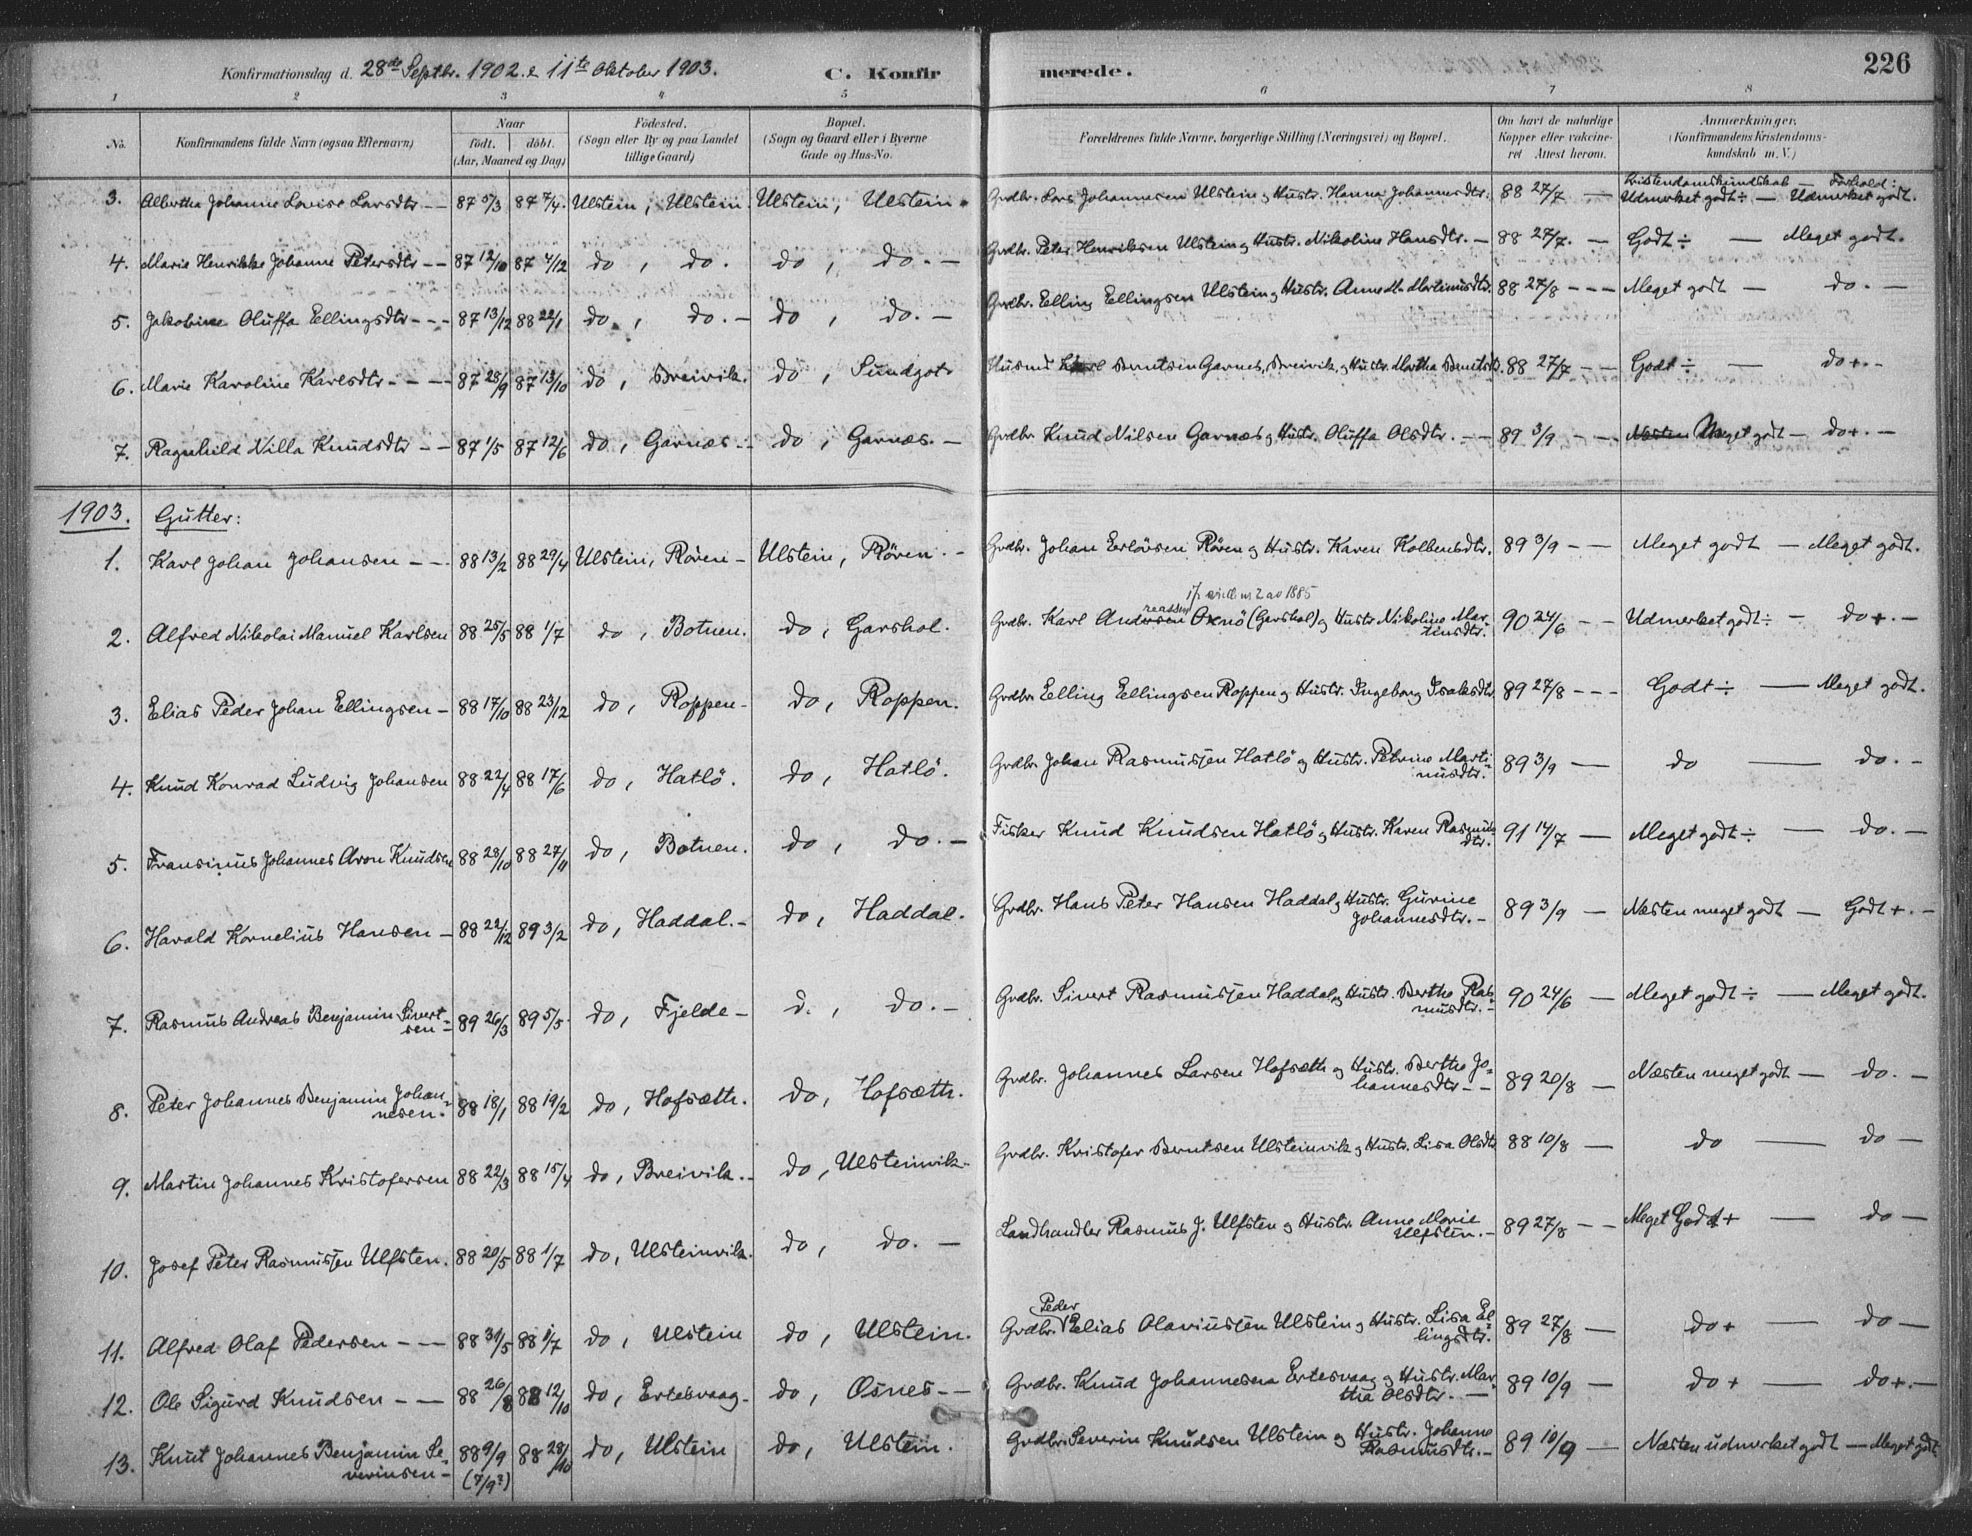 Konfirmationsdag d. 28de Septbr. 1902. & 11te Oktober 1903. C. Konfirmerede. 226
1 2 3 4 5 6 7 8
No. Konfirmandens fulde Navn (ogsaa Efternavn) Naar født. døbt. (Aar, Maaned og Dag) Fødested. (Sogn eller By og paa Landet tillige Gaard) Bopæl. (Sogn og Gaard eller i Byerne Gade og Hus-No. Forældrenes fulde Navne, borgerlige Stilling (Næringsvei) og Bopæl. Om havt de naturlige Kopper eller vaccineret Attest herom. Anmærkninger. (Konfirmandens Kristendomskundskab m. V.)
Kristendomskundskab — Forhold:
3. Albertha Johanne Lovise Larsdtr — — 87 5/3 87 7/4. Ulstein, Ulstein. Ulstein, Ulstein. Grdbr. Lars Johannesen Ulstein & Hustr. Hanna Johannesdtr. 88 27/7 — Udmerket godt ÷ — Udmerket godt.
4. Marie Henrikke Johanne Petersdtr — — 87 12/10 87 4/12 do, do. do, do. — Grdbr. Peter Henriksen Ulstein & Hustr. Nikoline Hansdtr. — 88 27/7. — Godt ÷ — Meget godt.
5. Jakobine Oluffa Ellingsdtr — — — 87 13/12 88 22/1 do, do. — do, do. — Grdbr. Elling Ellingsen Ulstein & Hustr. Anne Martinusdtr. 88 27/8 — — — Meget godt — do. —
6. Marie Karoline Karlsdtr — — — 87 28/9 87 13/10 do, Breivik. do, Sundgot Husmd Karl Berntsen Garnes, Breivik, & Hustr. Martha Berntsdtr. 88 27/7 — — Godt ÷ — do +. —
7. Ragnhild Nilla Knudsdtr — — 87 1/5 87 12/6 do, Garnæs. — do, Garnæs. — Grdbr. Knud Nilsen Garnæs & Hustr. Oluffa Olsdtr. — — 89 3/9 — — Næsten Meget godt — do +. —
1903. Gutter:
1. Karl Johan Johansen — — 88 13/2 88 29/4 Ulstein, Røren — Ulstein, Røren. — Grdbr. Johan Erlövsen Røren & Hustr. Karen Kolbensdtr. 89 3/9 — — Meget godt — Meget godt.
2 av 1885
2. Alfred Nikolai Manuel Karlsen 88 25/5 88 1/7 do, Botnen. do, Garshol. Grdbr. Karl Andersen reassen Oxnö (Garshol) & Hustr. Nikoline Martinsdtr. 90 24/6 — — Udmerket godt ÷ — do +. —
3. Elias Peder Johan Ellingsen — 88 17/10 88 23/12 do, Roppen — do, Roppen. Grdbr. Elling Ellingsen Roppen & Hustr. Ingeborg Isaksdtr. 89 27/8 — — — Godt ÷ — Meget godt.
4. Knud Konrad Ludvig Johansen 88 22/4 88 17/6 do, Hatlö. do, Hatlö. Grdbr. Johan Rasmussen Hatlö & Hustr. Petrine Martinusdtr. 89 3/9 — do — do. —
5. Fransinus Johannes Aron Knudsen 88 28/10 88 27/11 do, Botnen. do, do. — Fisker Knud Knudsen Hatlö & Hustr. Karen Rasmusdtr. 91 14/7 — Meget godt ÷ — do. —
6. Harald Kornelius Hansen — 88 22/12 89 3/2 do, Haddal. — do, Haddal. Grdbr. Hans Peter Hansen Haddal & Hustr. Gurine Johannesdtr. — 89 3/9 — Næsten meget godt — Godt +. —
7. Rasmus Andreas Benjamin Sivertsen — 89 26/3 89 5/5. do, Fjelde — d., do. — Grdbr. Sivert Rasmussen Haddal & Hustr. Berthe Rasmusdtr. — 90 24/6 — Meget godt ÷ — Meget godt.
8. Peter Johannes Benjamin Johannesen. 88 18/1 88 19/2 do, Hofsæth. do, Hofsæth. Grdbr. Johannes Larsen Hofsæth & Hustr. Berthe Johannesdtr — — 89 20/8 — Næsten meget godt — do. —
9. Martin Johannes Kristofersen 88 22/3 88 15/4 do, Breivik. — do, Ulsteinvik. Grdbr. Kristofer Berntsen Ulsteinvik & Hustr. Lisa Olsdtr 88 10/8 — do — do —
10. Josef Peter Rasmussen Ulfsten. 88 20/5 88 1/7 do, Ulsteinvik. do, do. — Landhandler Rasmus J. Ulfsten & Hustr. Anne Marie Ulfsten. — 89 27/8 — — Meget Godt + — do —
11. Alfred Olaf Pedersen — — 88 31/5 88 1/7 do, Ulstein do, Ulstein. Grdbr. Peder Elias Olaviussen Ulstein & Hustr. Lisa Ellingsdtr. 89 27/8 — do + — do —
12. Ole Sigurd Knudsen — — 88 26/8 88 12/10 do, Ertesvaag — do, Osnes — — Grdbr. Knud Johannessen Ertesvaag & Hustr. Martha Olsdtr. — 89 10/9 — do + — do +. —
13. Knut Johannes Benjamin Severinsen — 88 9/9 (7/9?) 88 28/10 do, Ulstein do, Ulstein. Grdbr. Severin Knudsen Ulstein & Hustr. Johanne Rasmusdtr. — 89 10/9 — Næsten udmerket godt — Meget godt